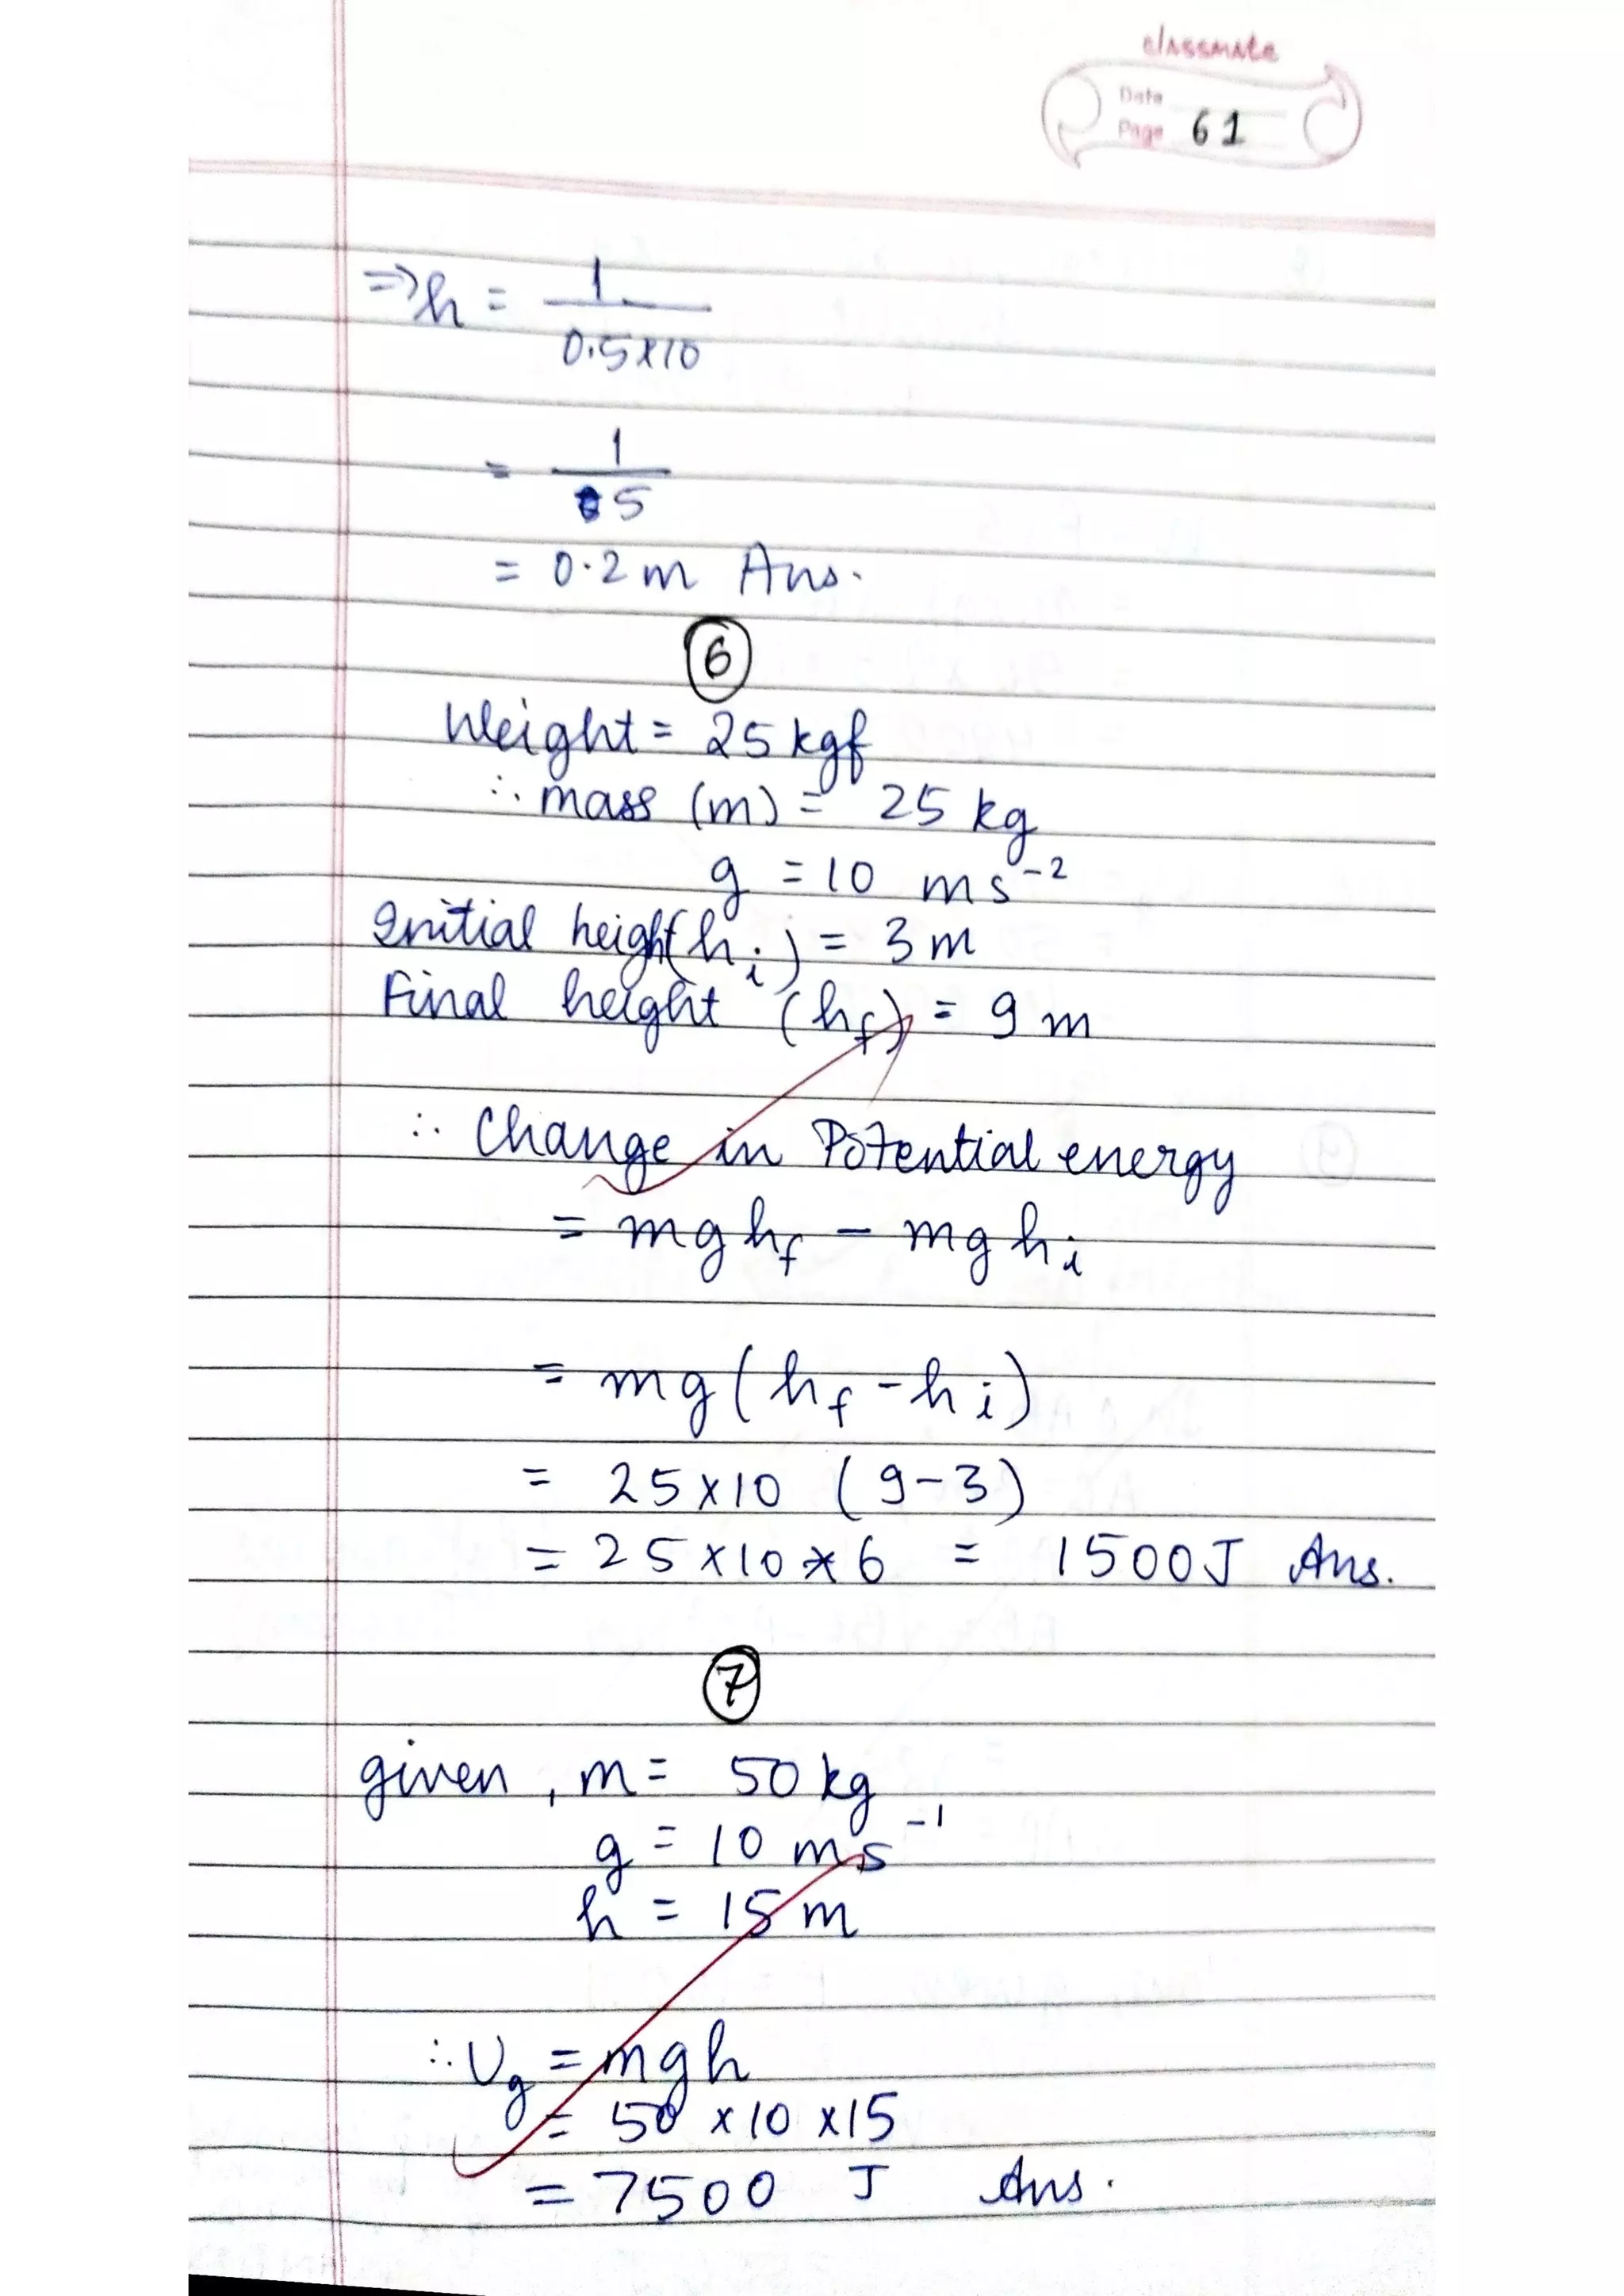 classmate
Date
Page 61
⇒ h = 1 / 0.5×10
= 1 / 5
= 0.2 m Ans.
6
Weight = 25 kgf
∴ mass (m) = 25 kg
g = 10 ms⁻²
Initial height (hᵢ) = 3 m
Final height (h_f) = 9 m
∴ Change in Potential energy
= mgh_f − mghᵢ
= mg(h_f − hᵢ)
= 25×10 (9−3)
= 25×10×6 = 1500J Ans.
7
given, m = 50 kg
g = 10 ms⁻¹
h = 15 m
∴ U_g = mgh
= 50 ×10 ×15
= 7500 J Ans.